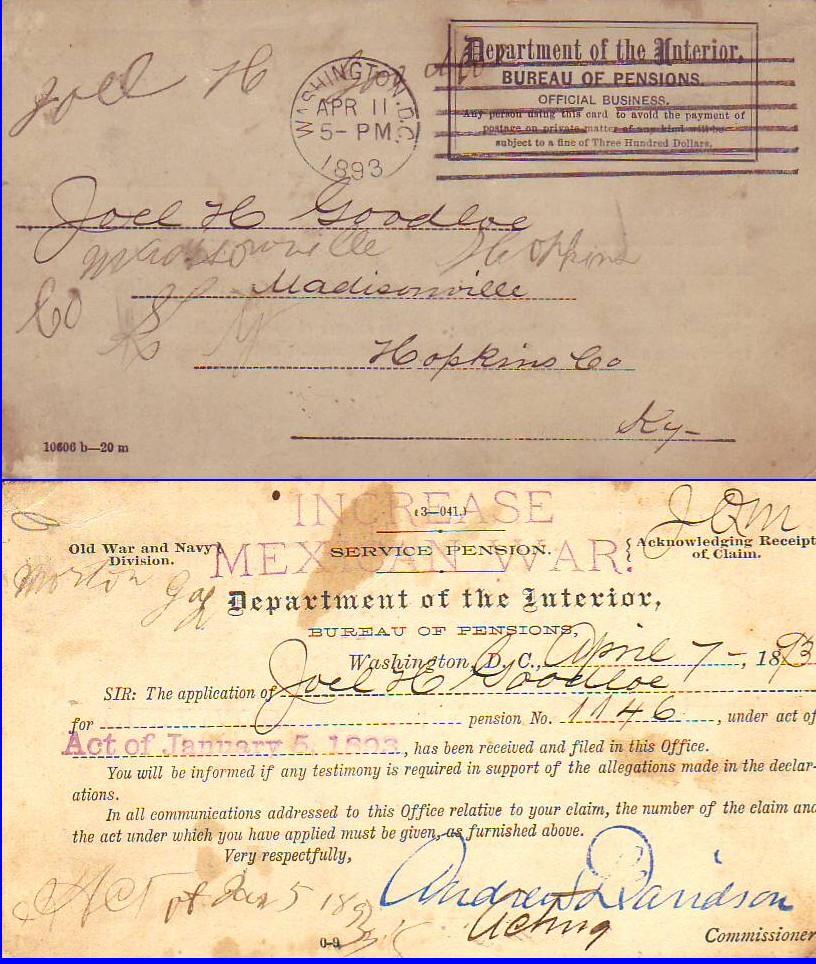 Joel H
WASHINGTON, D.C.
APR 11
5- PM
1893
Department of the Interior,
BUREAU OF PENSIONS.
OFFICIAL BUSINESS.
Any person using this card to avoid the payment of
postage on private matter of any kind will be
subject to a fine of Three Hundred Dollars.
Joel H Goodloe
Madisonville Hopkins
Madisonville
Co K Y
Hopkins Co
Ky-
10606 b—20 m
INCREASE
(3—041.)
Old War and Navy
Division.
MEXICAN WAR.
SERVICE PENSION.
Acknowledging Receipt
of Claim.
Morton Gap
Department of the Interior,
BUREAU OF PENSIONS,
Washington, D. C., April 7-, 1893
SIR: The application of Joel H Goodloe
for pension No. 1146, under act of
Act of January 5, 1893, has been received and filed in this Office.
You will be informed if any testimony is required in support of the allegations made in the declar-
ations.
In all communications addressed to this Office relative to your claim, the number of the claim and
the act under which you have applied must be given, as furnished above.
Very respectfully,
Andrew Davidson
Act of Jan 5 1893
Acting
0-9
Commissioner